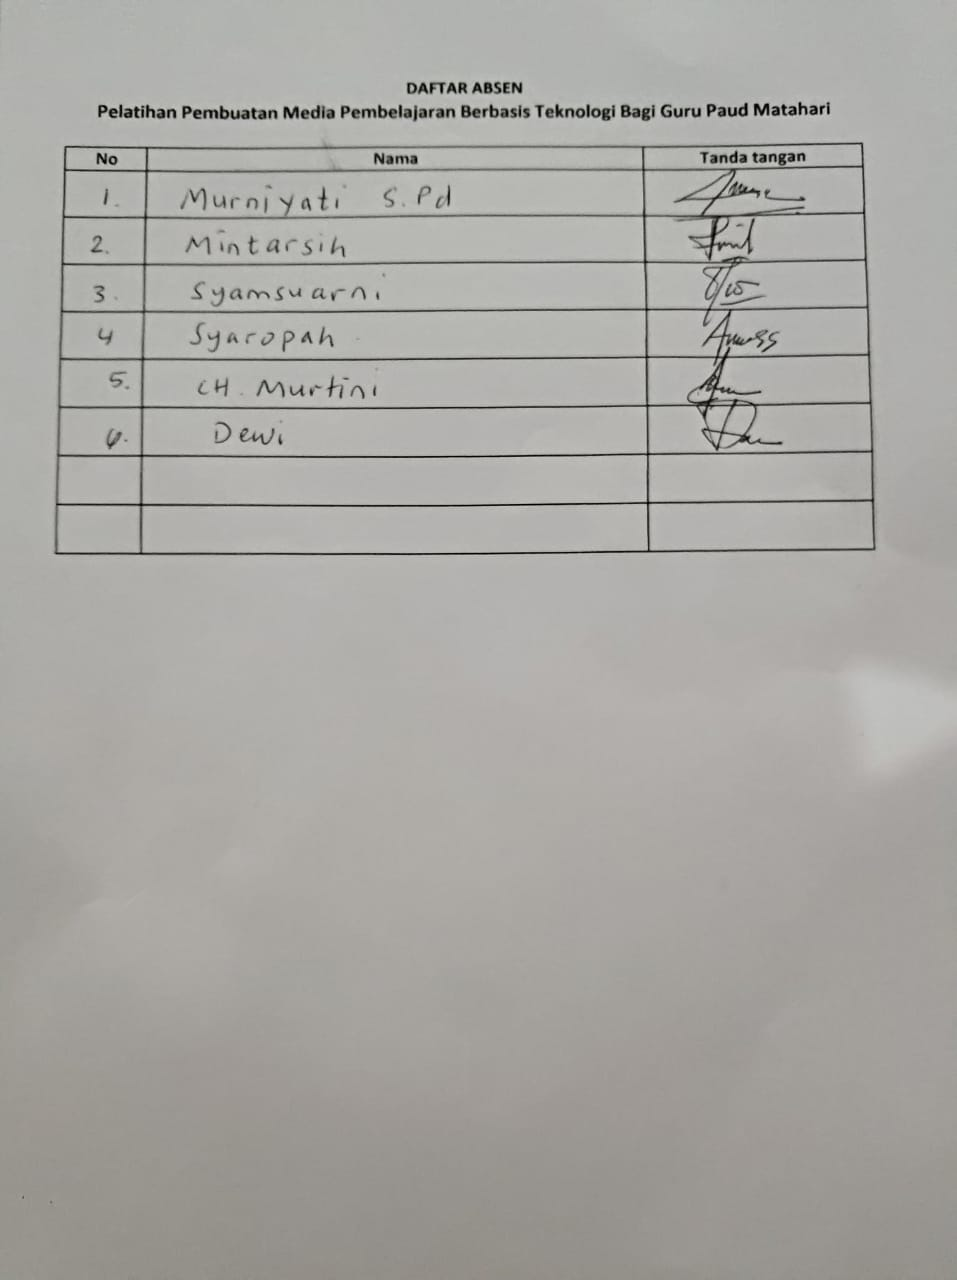 DAFTAR ABSEN
Pelatihan Pembuatan Media Pembelajaran Berbasis Teknologi Bagi Guru Paud Matahari
No Nama Tanda tangan
1. Murniyati S.Pd
2. Mintarsih
3. Syamsuarni
4 Syaropah
5. CH. Murtini
6. Dewi